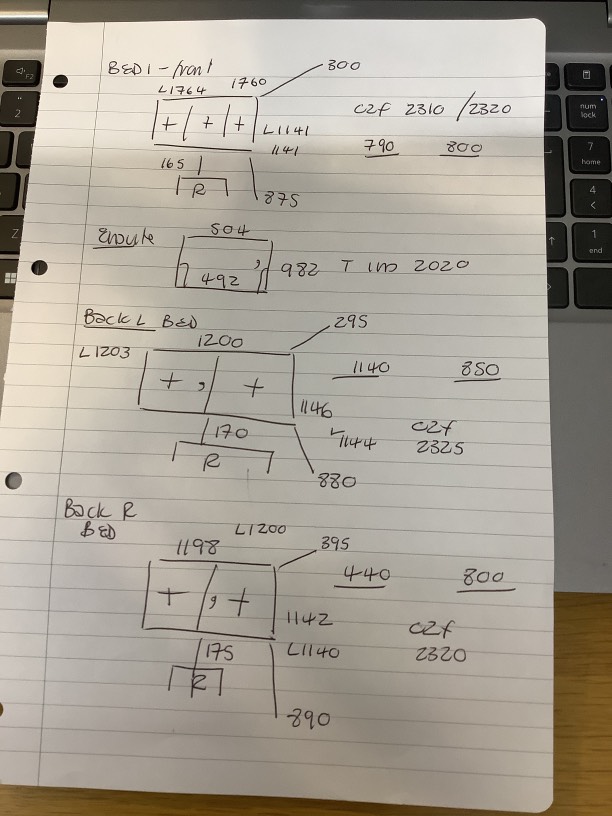 BED 1 - front
300
L1764 1760
c2f 2310 / 2320
L1141
1141
790 800
165
R
875
504
492
982 T IMD 2020
Back L BED
295
L1203 1200
1140 850
1146
170
L1144
c2f
2325
R
880
Back R
BED
L1200
1198
395
440 800
1142
c2f
175
L1140
2320
R
890